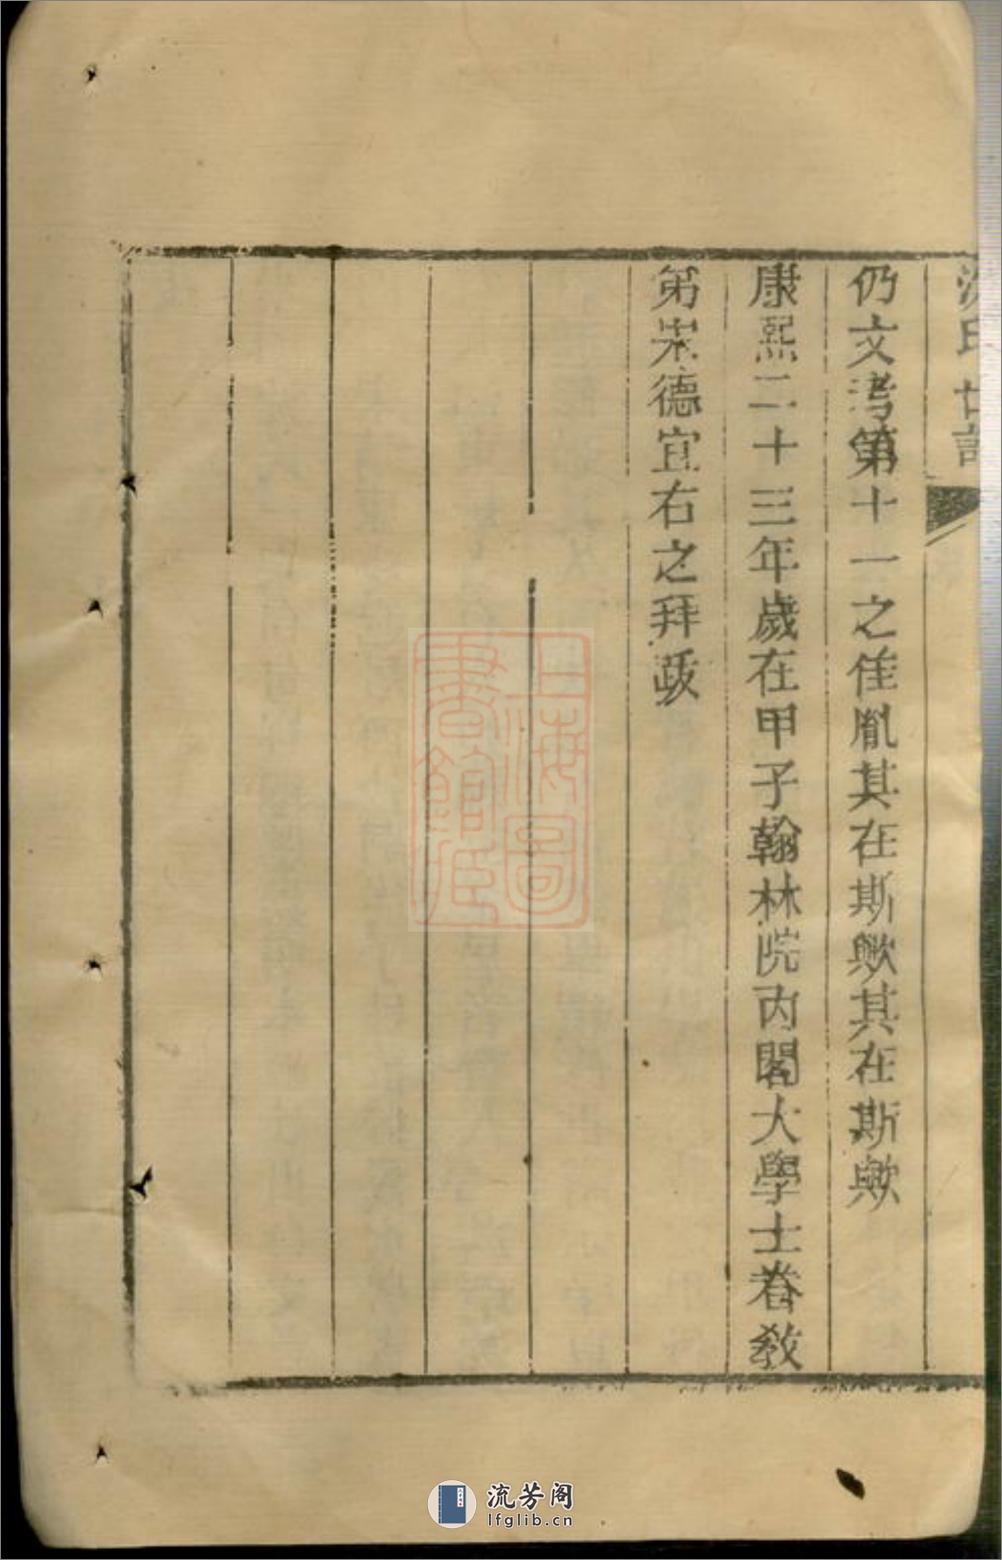 沈氏世譜
仍文考第十一之佳胤其在斯歟其在斯歟
康熙二十三年歲在甲子翰林院內閣大學士眷教
弟宋德宜右之拜䟦
上海圖
書館藏
流芳阁
lfglib.cn